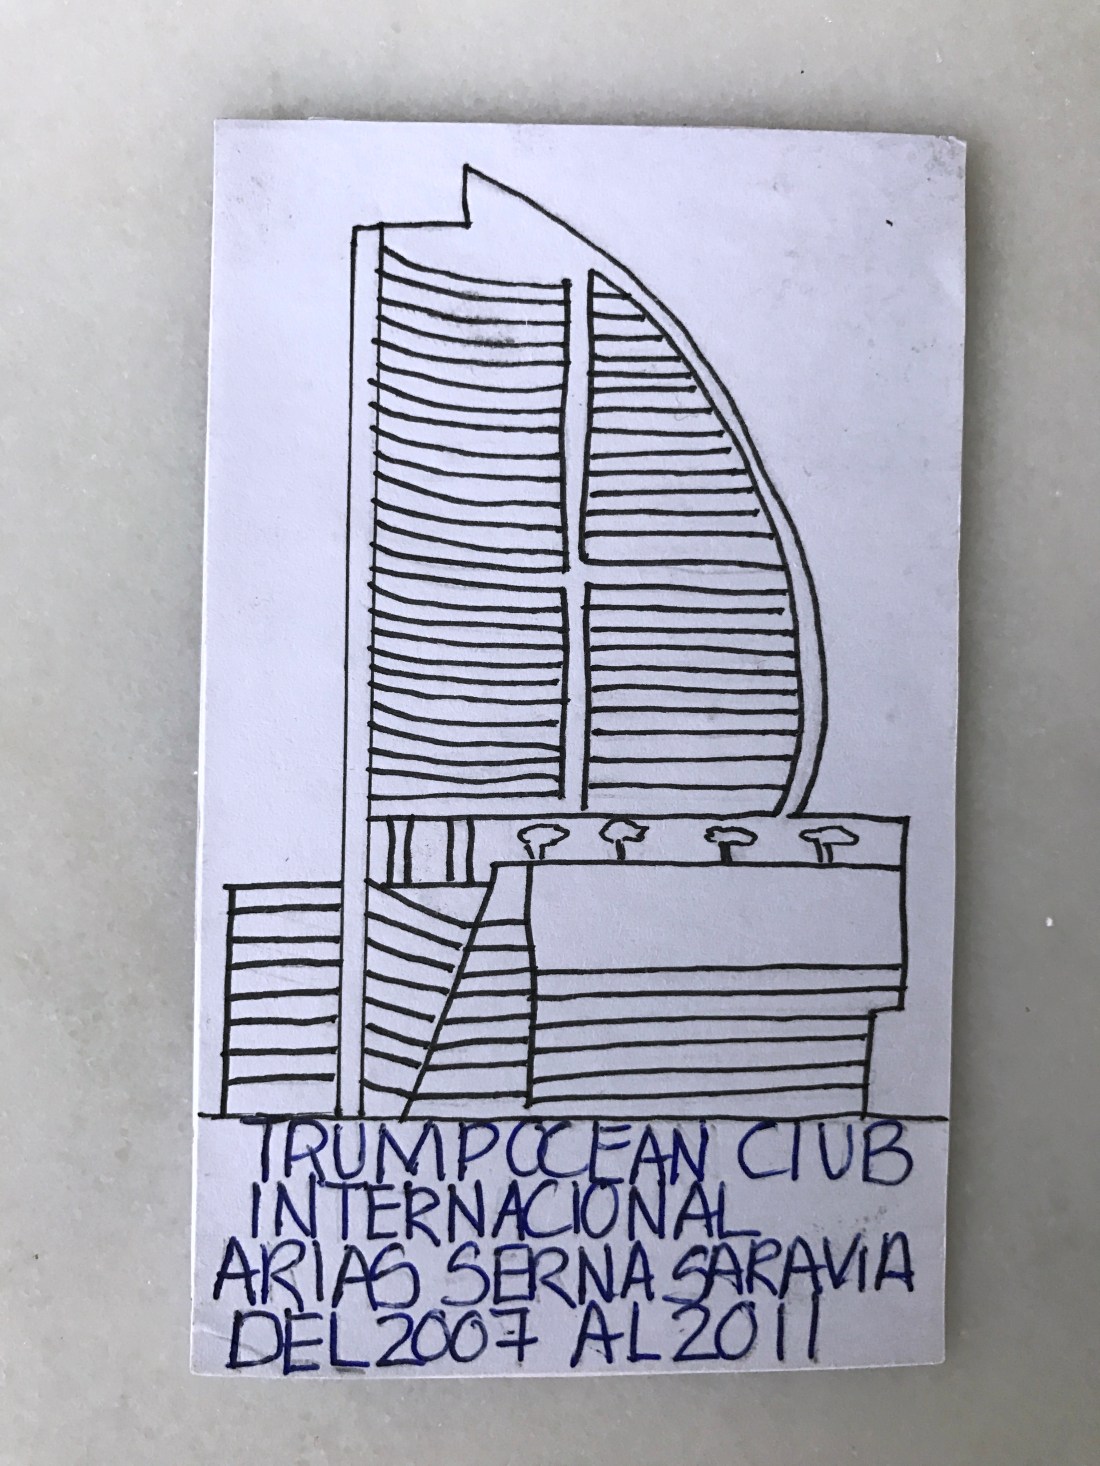 TRUMPOCEAN CLUB
INTERNACIONAL
ARIAS SERNA SARAVIA
DEL 2007 AL 2011